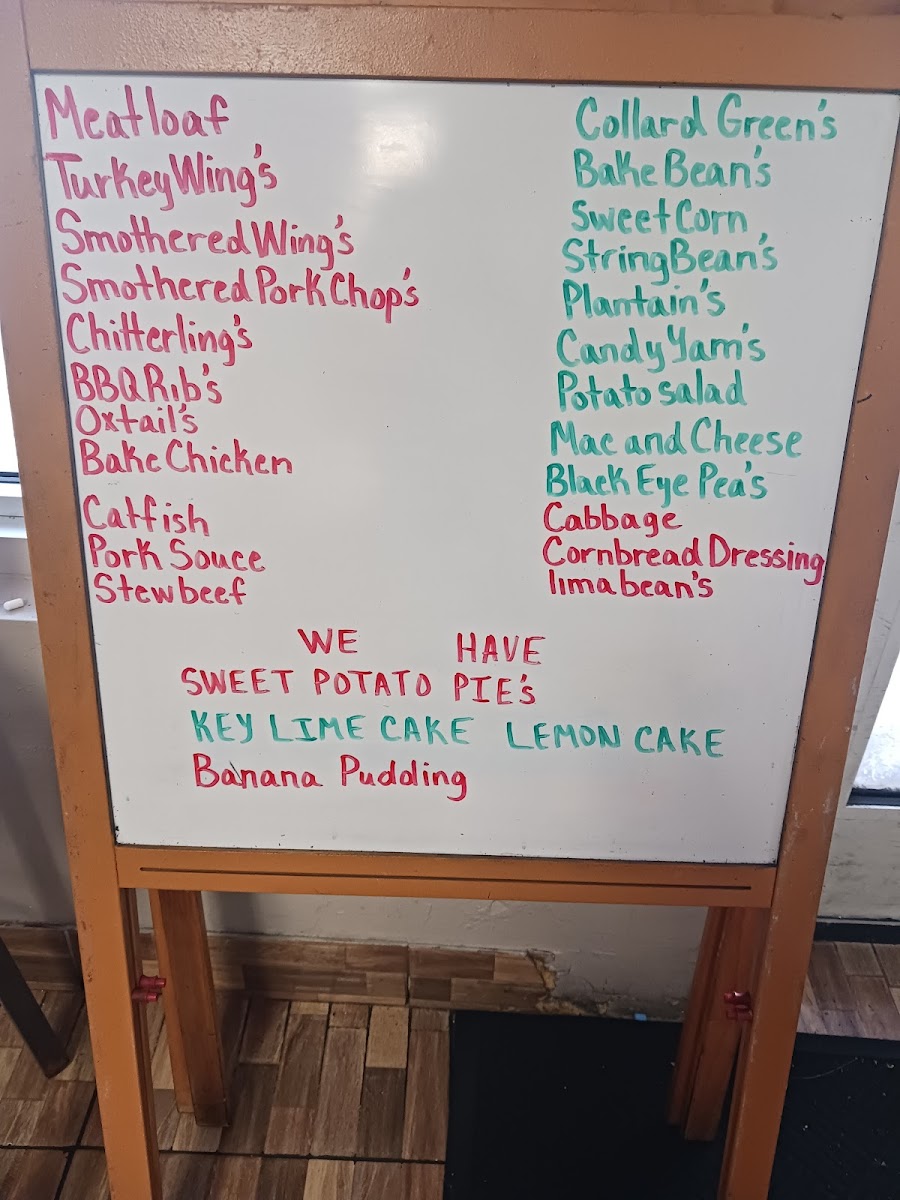 Meatloaf
Turkey Wing's
Smothered Wing's
Smothered Pork Chop's
Chitterling's
BBQ Rib's
Oxtail's
Bake Chicken
Catfish
Pork Souce
Stewbeef
Collard Green's
Bake Bean's
Sweet Corn
String Bean's
Plantain's
Candy Yam's
Potato salad
Mac and Cheese
Black Eye Pea's
Cabbage
Cornbread Dressing
lima bean's
WE HAVE
SWEET POTATO PIE's
KEY LIME CAKE LEMON CAKE
Banana Pudding